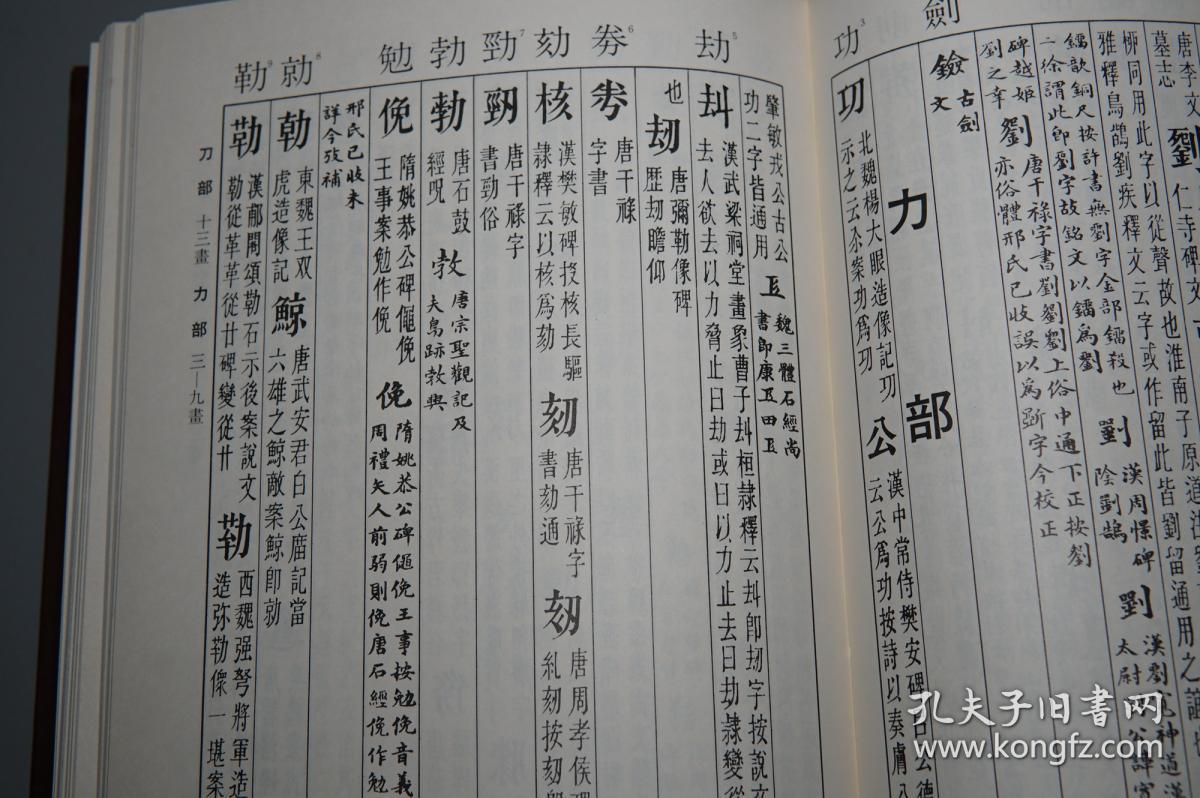 劍
功3
劫5
券6
劾
勁7
勃
勉
勍8
勒9
唐李文
墓士志
劉
仁寺碑文
栁同用此字以從聲故也淮南子原道
雅釋鳥鶹劉疾釋文云字或作留此皆劉留通用之
鐂歆銅尺按許書無劉字金部鐂殺也
劉
漢周憬碑
陰劉鵠
劉
漢劉寬神道
太尉
二徐謂此即劉字故銘文以鐂為劉
碑越姫
劉之幸
劉
唐干祿字書劉劉劉上俗中通下正按劉
亦俗體邢氏已收誤以為斵字今校正
鐱
古劍
文
力部
功
北魏楊大眼造像記功
示之云尒案功爲功
公
漢中常侍樊安碑
云公爲功按詩以奏膚
肈敏戎公古公
功二字皆通用
魏三體石經尚
書即康
田
㓤
漢武梁祠堂畫象曹子㓤桓隷釋云㓤卽刼字按說文
去人欲去以力脅止曰劫或曰以力止去曰劫隷變從
也
刼
唐彌勒像碑
歴刼瞻仰
唐干祿
字書
核
漢樊敏碑投核長驅
隷釋云以核爲劾
刻
唐干祿字
書劾通
唐周孝侯碑
糺刻按刻
唐干祿字
書勁俗
唐石鼓
經呪
敎
唐宗聖觀記及
夫鳥跡敎興
俛
隋姚恭公碑僶俛
王事案勉作俛
俛
隋姚恭公碑僶俛王事按勉俛音義
周禮矢人前弱則俛唐石經俛作勉
邢氏已收未
詳今攷補
東魏王双
虎造像記
鯨
唐武安君白公庿記當
六雄之鯨敵案鯨卽勍
漢郙閣頌勒石示後案說文
勒從革革從廿碑變從廿
西魏强弩將軍造
造弥勒傑一堪案
刀部 十三畫 力部 三—九畫
孔夫子旧书网
www.kongfz.com